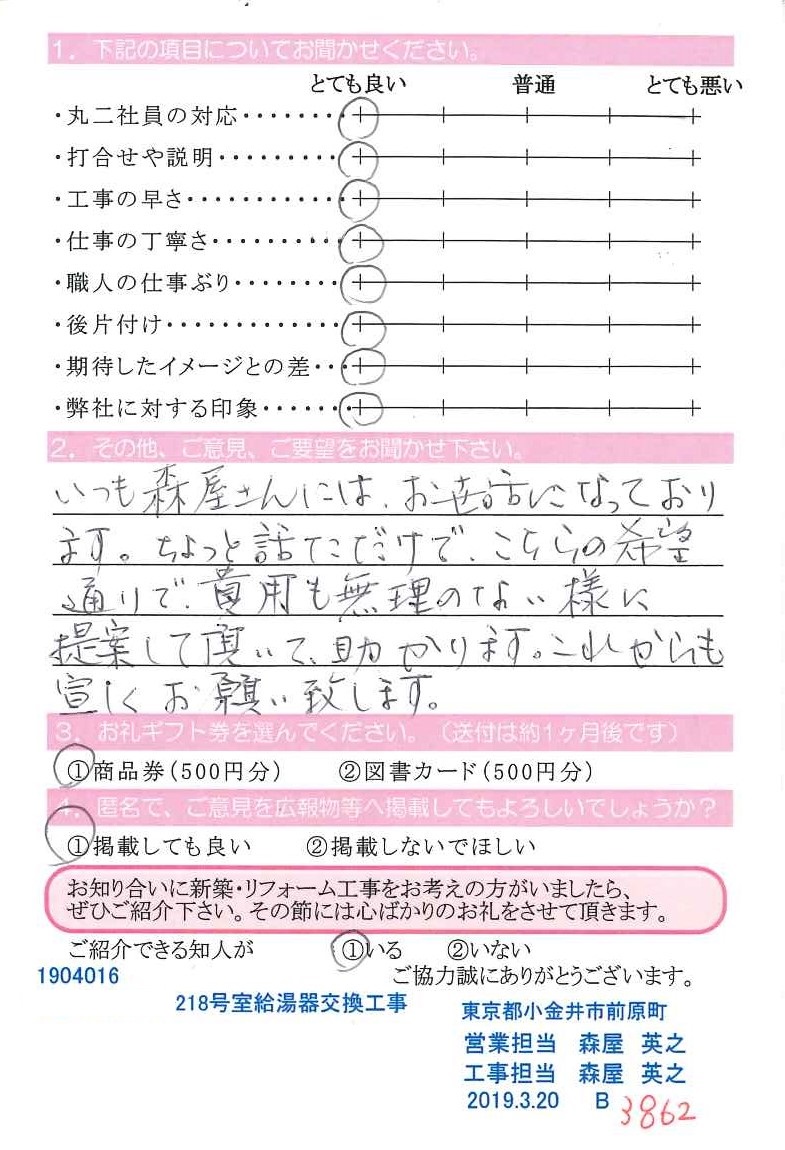 1. 下記の項目についてお聞かせください。
とても良い 普通 とても悪い
・丸二社員の対応・・・・・・・・
・打合せや説明・・・・・・・・・
・工事の早さ・・・・・・・・・・・・
・仕事の丁寧さ・・・・・・・・・・
・職人の仕事ぶり・・・・・・・・
・後片付け・・・・・・・・・・・・・
・期待したイメージとの差・・・
・弊社に対する印象・・・・・・
2. その他、ご意見、ご要望をお聞かせ下さい。
いつも森屋さんには、お世話になっており
ます。ちょっと話ただけで、こちらの希望
通りで、費用も無理のない様に
提案して頂いて、助かります。これからも
宜しくお願い致します。
3. お礼ギフト券を選んでください。（送付は約1ヶ月後です）
①商品券（500円分） ②図書カード（500円分）
4. 匿名で、ご意見を広報物等へ掲載してもよろしいでしょうか？
①掲載しても良い ②掲載しないでほしい
お知り合いに新築・リフォーム工事をお考えの方がいましたら、
ぜひご紹介下さい。その節には心ばかりのお礼をさせて頂きます。
ご紹介できる知人が ①いる ②いない
1904016 ご協力誠にありがとうございます。
218号室給湯器交換工事 東京都小金井市前原町
営業担当 森屋 英之
工事担当 森屋 英之
2019.3.20 B 3862